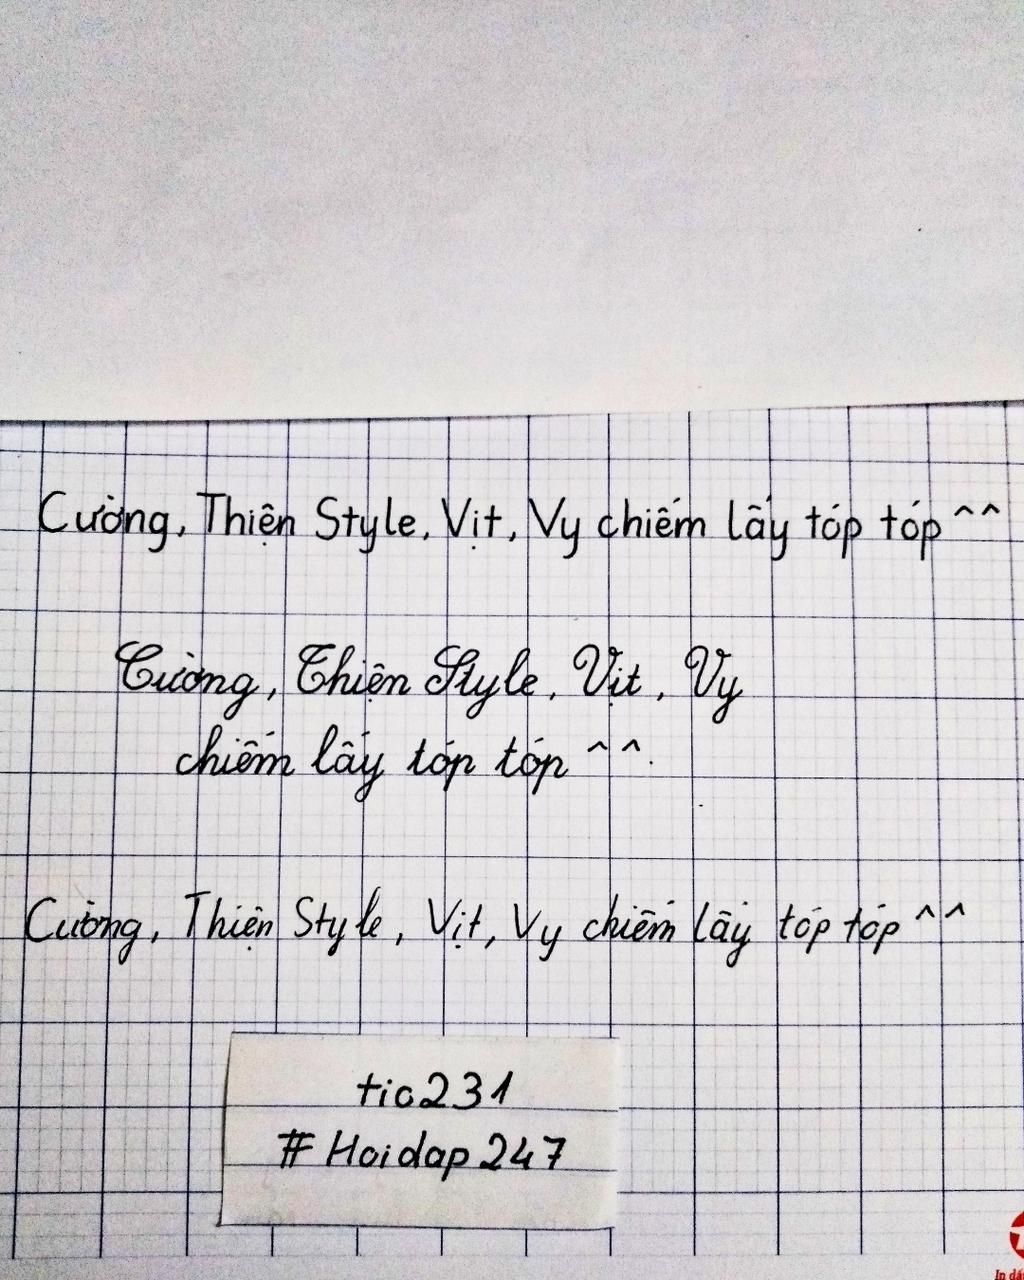 Cường, Thiện Style, Vịt, Vy chiếm lấy tóp tóp ^^
Cường, Thiện Style, Vịt, Vy
chiếm lấy tóp tóp ^^.
Cường, Thiện Style, Vịt, Vy chiếm lấy tóp tóp ^^
tic231
# Hoidap 247
In